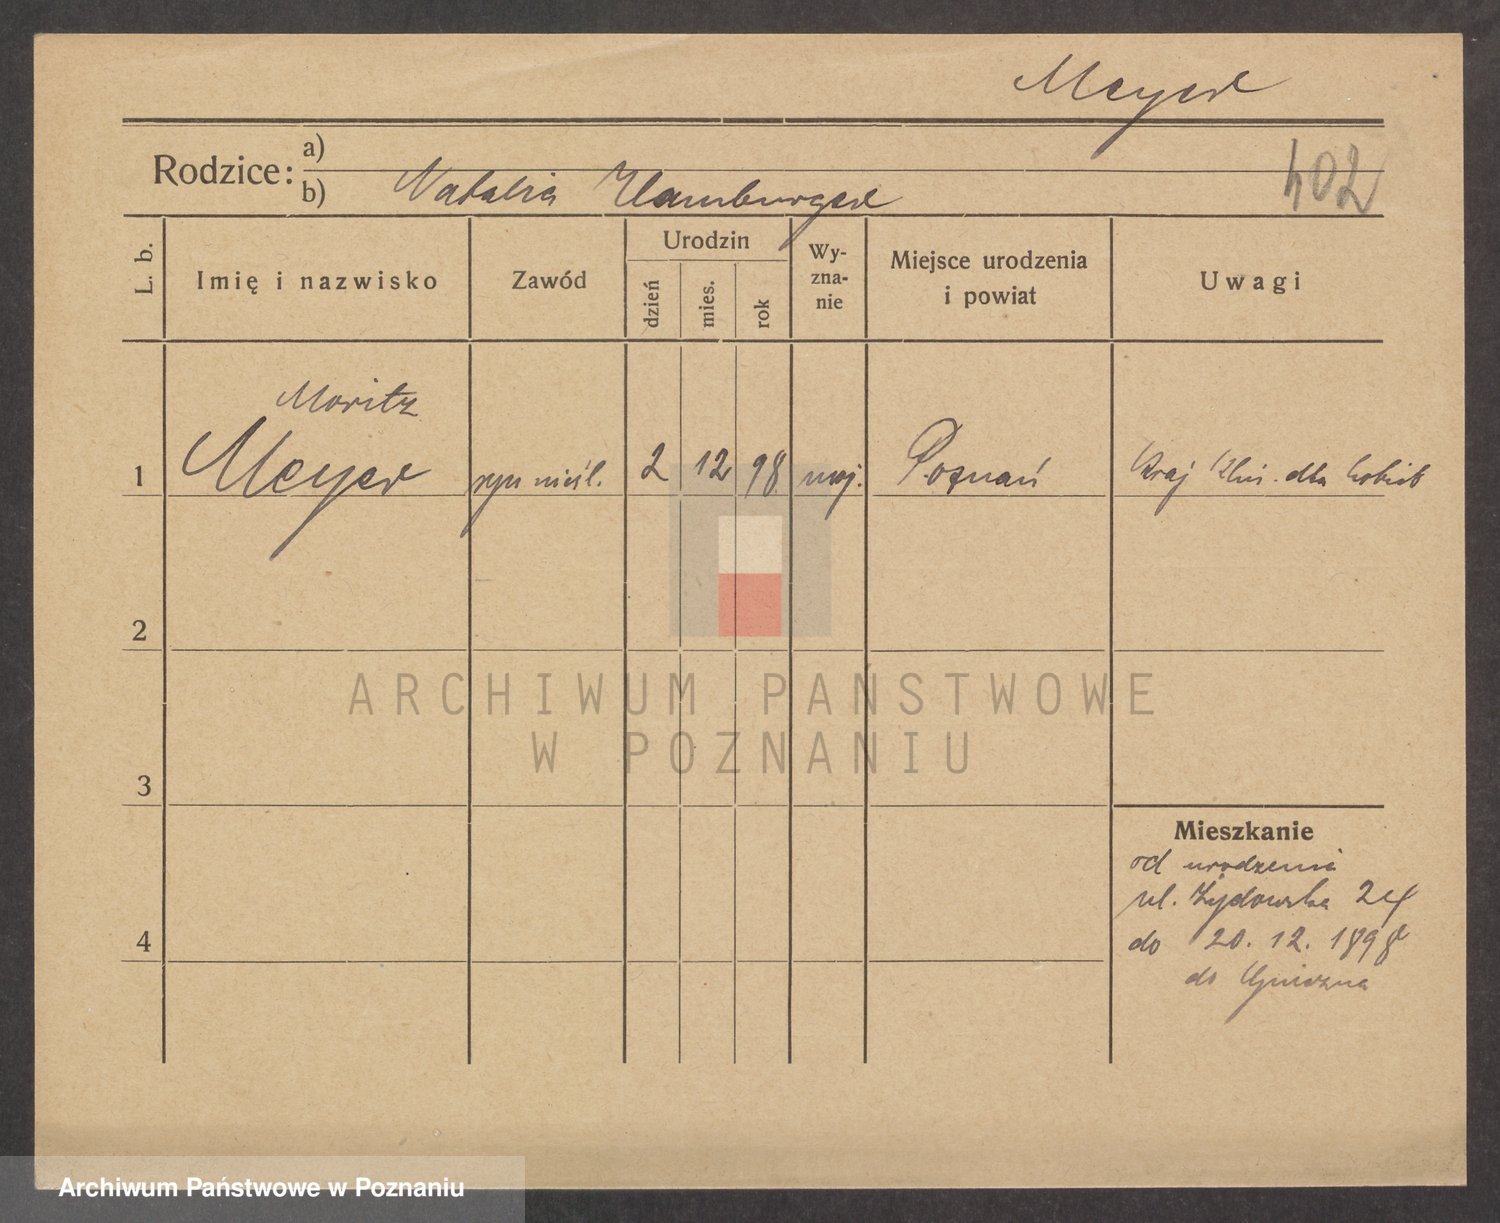 Meyer
Rodzice:
a)
b) Natalia Hamburger
402
L. b.
Imię i nazwisko
Zawód
Urodzin
dzień
mies.
rok
Wy-
zna-
nie
Miejsce urodzenia
i powiat
Uwagi
Moritz
1 Meyer syn nieśl. 2 12 98 moj. Poznań Kraj Klin. dla kobiet
2
3
4
Mieszkanie
od urodzenia
ul. Żydowska 24
do 20. 12. 1898
do Gniezna
ARCHIWUM PAŃSTWOWE
W POZNANIU
Archiwum Państwowe w Poznaniu